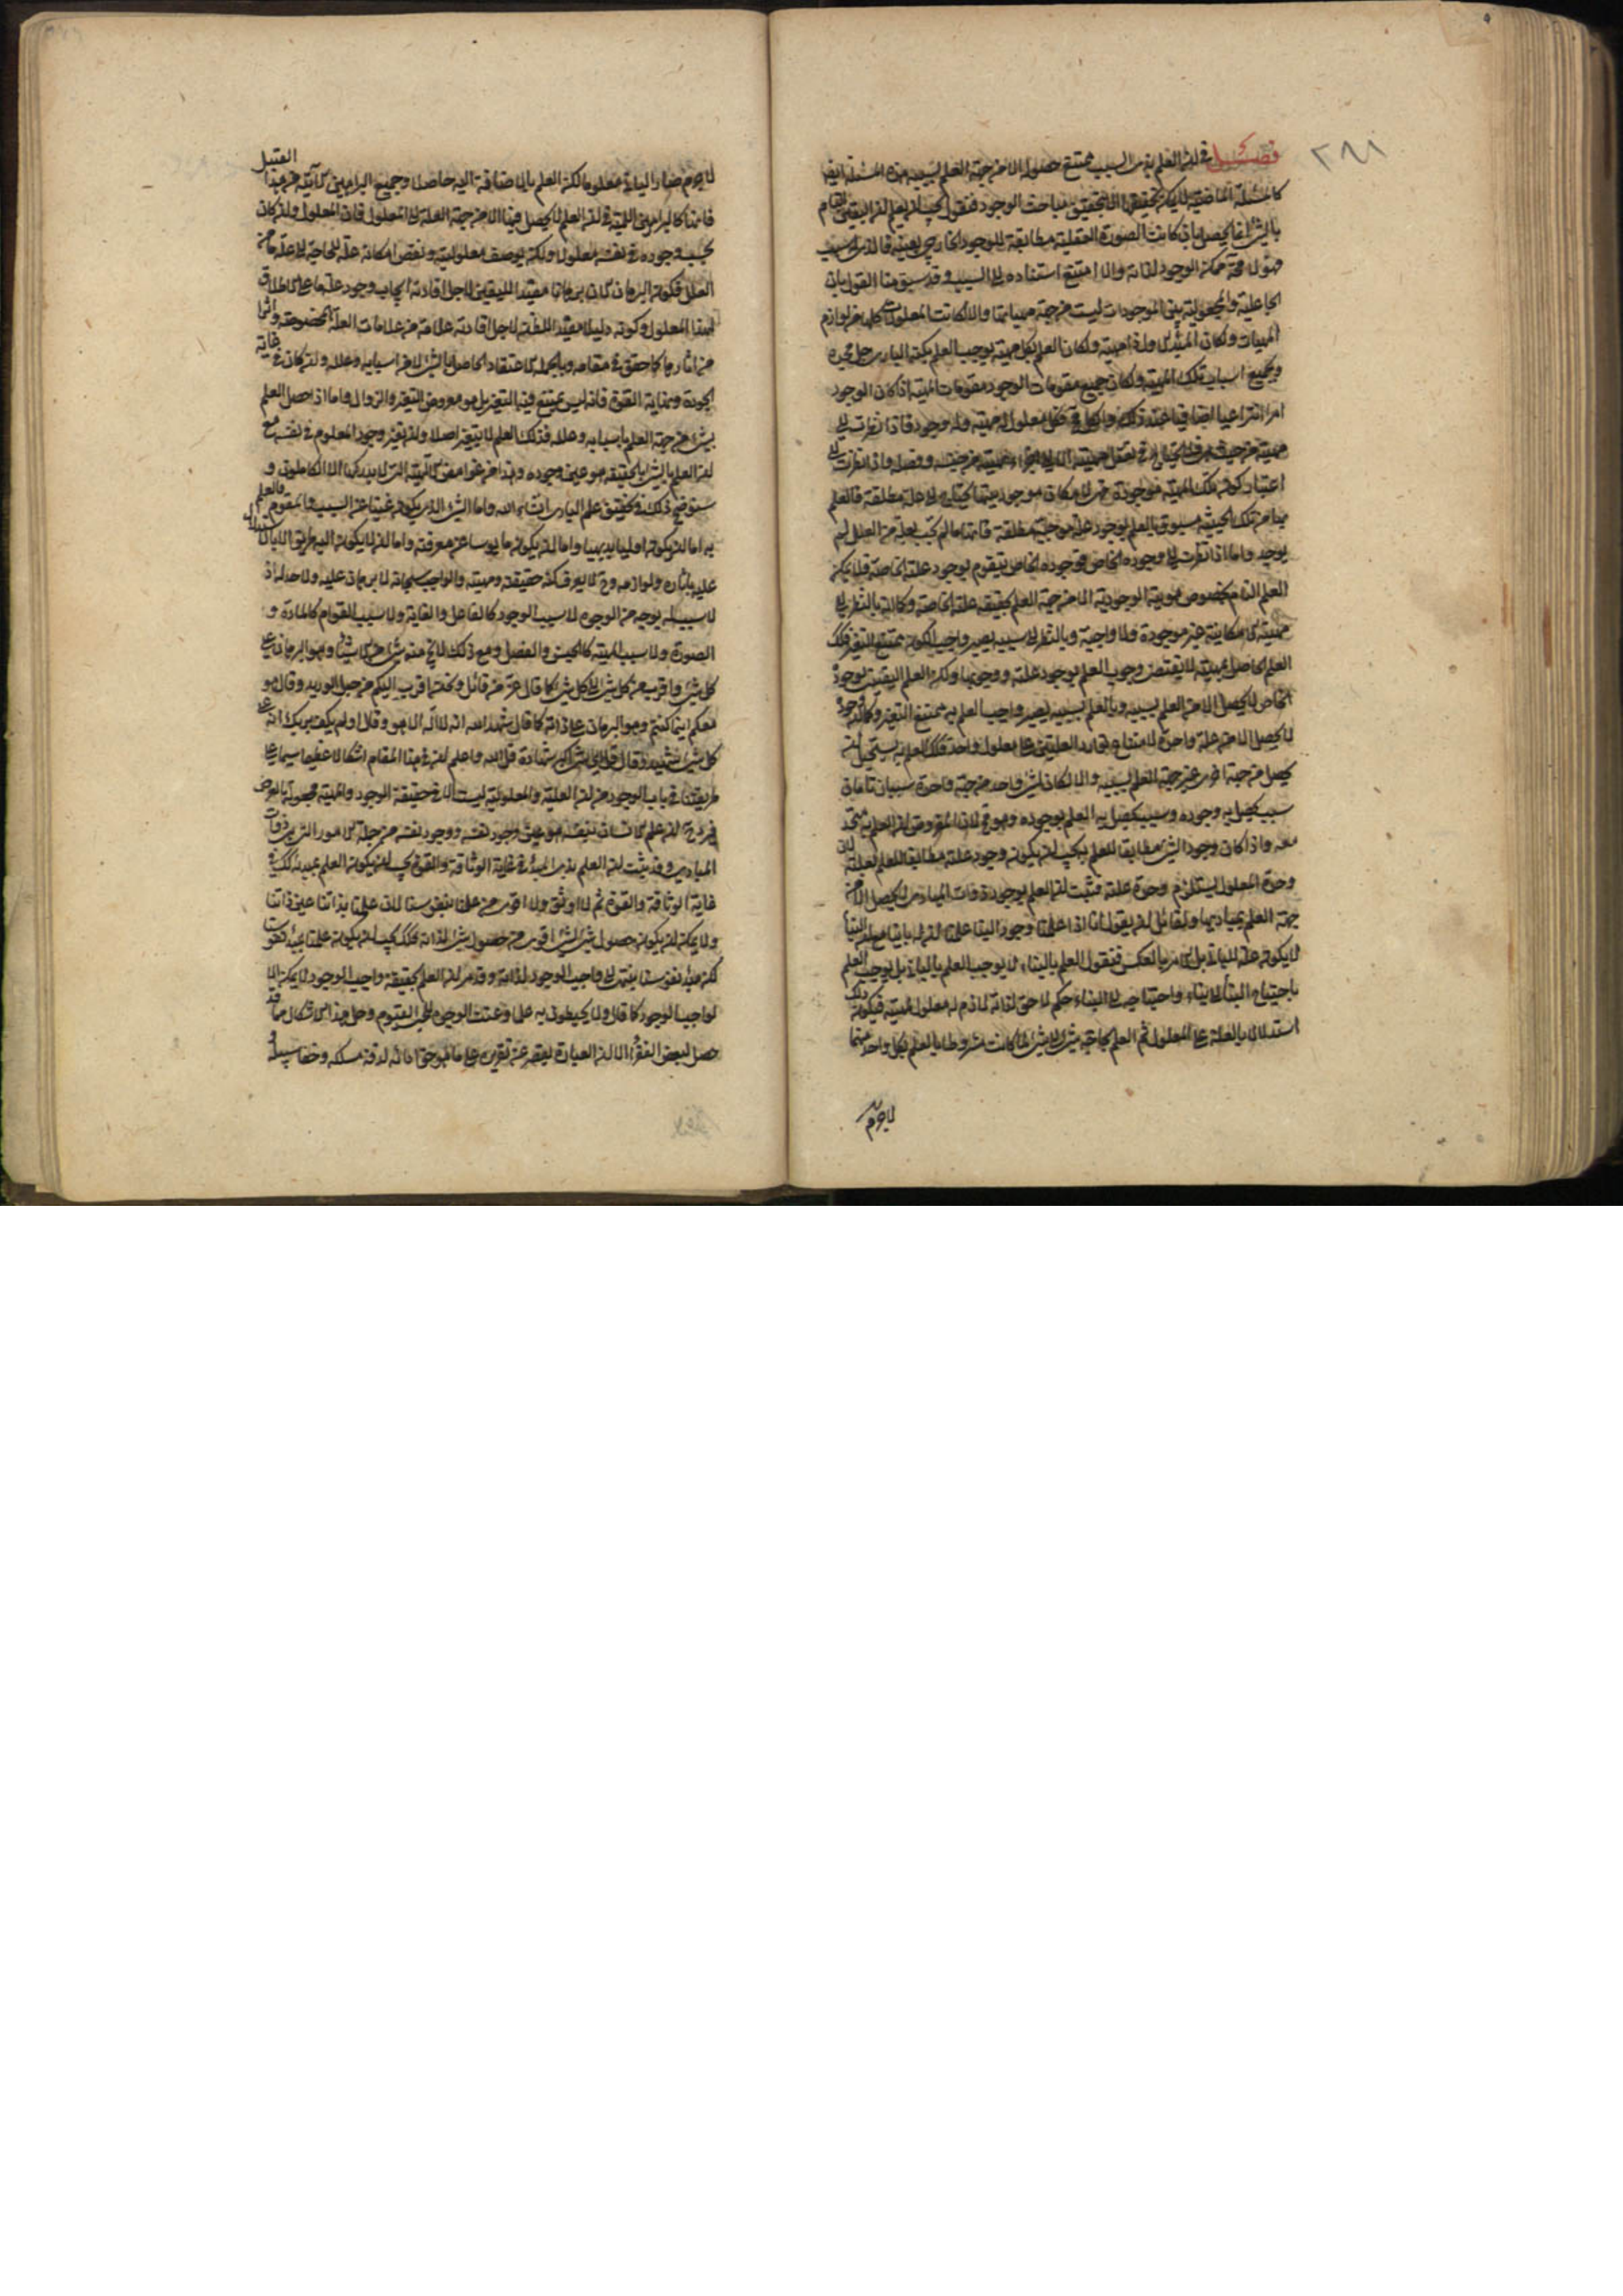 ٢٩١
فصل في ان العلم بذي السبب يمتنع حصوله الا من جهة العلم بسببه هذه المسئلة ايضا
كالمسئلة الماضية لا يمكن تحقيقها الا بتحقيق مباحث الوجود فنقول يجب ان يعلم ان اليقين التام
بالشئ انما يحصل بان كانت الصورة العقلية مطابقة للوجود الخارجي بعينه فالذي له سبب
فهو لا محة ممكن الوجود لذاته والا امتنع استناده الى السبب وقد سبق منا القول بان
الجاعلية والمجعولية بين الموجودات ليست من جهة مهياتها والا لكانت المعلولات كلها من لوازم
المهيات ولكان المبدأ الاول ذا مهية ولكان العلم بكل مهية يوجب العلم بكنه الباري جل مجده
وبجميع اسباب تلك المهية ولكان جميع مقومات الوجود مقومات المهية اذ كان الوجود
امرا انتزاعيا اضافيا عند ذلك والكل مح فكل معلول له مهية وله وجود فاذا نظرت الى
مهيته من حيث هي هي فلا يحتاج في تعقل مهيته الا الى اجزاء مهيته من جنسه وفصله واذا نظرت الى
اعتبار كون تلك المهية موجودة حتى الامكان موجوديتها يحتاج الى علة مطلقة فالعلم
بها من تلك الحيثية مسبوق بالعلم بوجود علة موجبة مطلقة فانها ما لم تجب بعلة من العلل لم
يوجد واما اذا نظرت الى وجوده الخاص فوجوده الخاص يتقوم بوجود علته الخاصة فلا يمكن
العلم التام بخصوص هويته الوجودية الا من جهة العلم بحقيقة علته الخاصة وكما انه بالنظر الى
مهيته الامكانية غير موجودة ولا واجبة وبالنظر الى سببه يصير واجب الكون ممتنع التغير فكذلك
العلم الحاصل بمهيته لا يقتضي وجوب العلم بوجود علته ووجوبها ولكن العلم اليقيني بوجوده
الخاص لا يحصل الا من العلم بسببه وبالعلم بسببه يصير واجب العلم به ممتنع التغير وكما ان وجوده
لا يحصل الا من علة واحدة لامتناع توارد العلتين على معلول واحد فكذلك العلم به يستحيل ان
يحصل من جهة اخرى غير جهة العلم بسببه والا لكان لشئ واحد من جهة واحدة سببان تامان
سبب يحصل به وجوده وسبب يحصل به العلم بوجوده وهو مح لان المفروض ان العلم به متحد
معه واذا كان وجود الشئ مطابقا للعلم به يجب ان يكون وجود علته مطابقا للعلم بعلته لان
وحدة المعلول يستلزم وحدة علته فثبت ان العلم بوجود ذوات المبادي لا يحصل الا من
جهة العلم بمباديها ولقائل ان يقول انا اذا علمنا وجود البناء علمنا ان له بانيا مع ان البناء
لا يكون علة للباني بل الامر بالعكس فنقول العلم بالبناء لا يوجب العلم بالباني بل يوجب العلم
باحتياج البناء الى بناء واحتياجه الى البناء حكم لاحق لذاته لازم له معلول لمهيته فيكون ذلك
استدلالا بالعلة على المعلول ثم العلم بحاجة شئ الى شئ لما كانت مشروطا بالعلم بكل واحد منهما
لا جرم
لا جرم صار الباني معلوما لكن العلم بالاضافة اليه حاصلا وجميع البراهين الانية من هذا القبيل
فانها كالبراهين اللمية في ان العلم لا يحصل فيها الا من جهة العلة الى المعلول فان المعلول وان كان
بحسب وجوده في نفسه معلولا ولكنه بوصف معلوليته ونقص امكانه علة للحاجة الى علة ما من
العلل فكون البرهان الان برهانا مفيدا لليقين لاجل افادته ايجاب وجود علة ما على الاطلاق
لهذا المعلول وكونه دليلا مفيدا للظن لاجل افادته علامة من علامات العلة المخصوصة واثرا
من اثارها كما حقق في مقامه وبالجملة الاعتقاد الحاصل بالشئ لا من اسبابه وعلله وان كان في غاية
الجودة ونهاية القوة فانه ليس يمتنع فيه التغير بل هو معروض التغير والزوال واما اذا حصل العلم
بشئ من جهة العلم باسبابه وعلله فذلك العلم لا يتغير اصلا وان تغير وجود المعلوم في نفسه مع
ان العلم بالشئ بالحقيقة هو عين وجوده وهذا من غوامض الالهية التي لا يدركها الا الكاملون و
ستوضح ذلك في تحقيق علم الباري انشاء الله واما الشئ الذي يكون غنيا عن السبب والمقوم فالعلم
به اما ان يكون اوليا بديهيا واما ان يكون مايوسا عن معرفته واما ان لا يكون اليه طريق الا بالاستدلال
عليه باثاره ولوازمه وح لا يعرف كنه حقيقته ومهيته والواجب سبحانه لا برهان عليه ولا حد له اذ
لا سبب له بوجه من الوجوه لا سبب الوجود كالفاعل والغاية ولا سبب القوام كالمادة و
الصورة ولا سبب المهية كالجنس والفصل ومع ذلك لا يخ عنه شئ من الاشياء وهو البرهان على
كل شئ واقرب من كل شئ الى كل شئ كما قال عز من قائل ونحن اقرب اليكم من حبل الوريد وقال وهو
معكم اينما كنتم وهو البرهان على ذاته كما قال شهد الله انه لا اله الا هو وقال اولم يكف بربك انه على
كل شئ شهيد وقال قل اي شئ اكبر شهادة قل الله واعلم ان في هذا المقام اشكالا عظيما سيما على
طريقتنا في باب الوجود من ان العلية والمعلولية ليست الا في حقيقة الوجود والمهية مجعولة بالعرض
فيرد ح ان علم الانسان بنفسه هو عين وجود نفسه ووجود نفسه من جملة الامور التي هي ذوات
المبادي وقد ثبت ان العلم بذي المبدأ في غاية الوثاقة والقوة يجب ان يكون العلم بمبدئه كك في
غاية الوثاقة والقوة ثم لا اوثق ولا اقوى من علمنا بنفوسنا لان علمنا بذاتنا عين ذاتنا
ولا يمكن ان يكون حصول شئ لشئ اقوى من حصول شئ لذاته فكك يجب ان يكون علمنا بمبدأ نفوسنا
لكن مبدأ نفوسنا ينتهي الى واجب الوجود لذاته وقد مر ان العلم بحقيقة واجب الوجود لا يمكن الا
لواجب الوجود كما قال ولا يحيطون به علما وعنت الوجوه للحي القيوم وحل هذا الاشكال مما قد
حصل لبعض الفقراء الا ان العبارة يقصر عن تقريره على ما هو حقه اما لدقة مسلكه وخفاء سبيله و